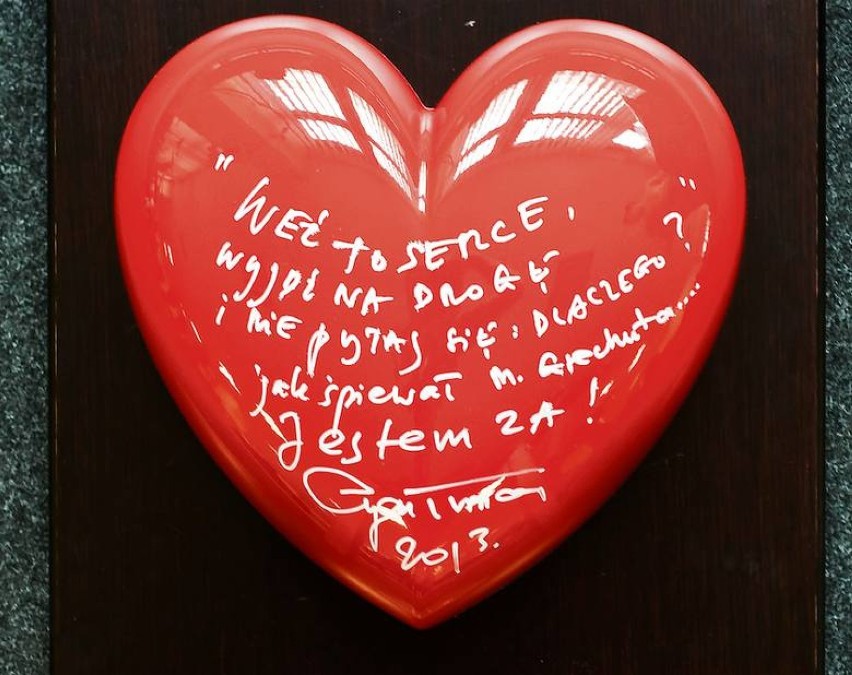 "WEŹ TO SERCE,
WYJDŹ NA DROGĘ
i NIE PYTAJ SIĘ: DLACZEGO?"
jak śpiewał M. Grechuta....
Jestem ZA!
2013.